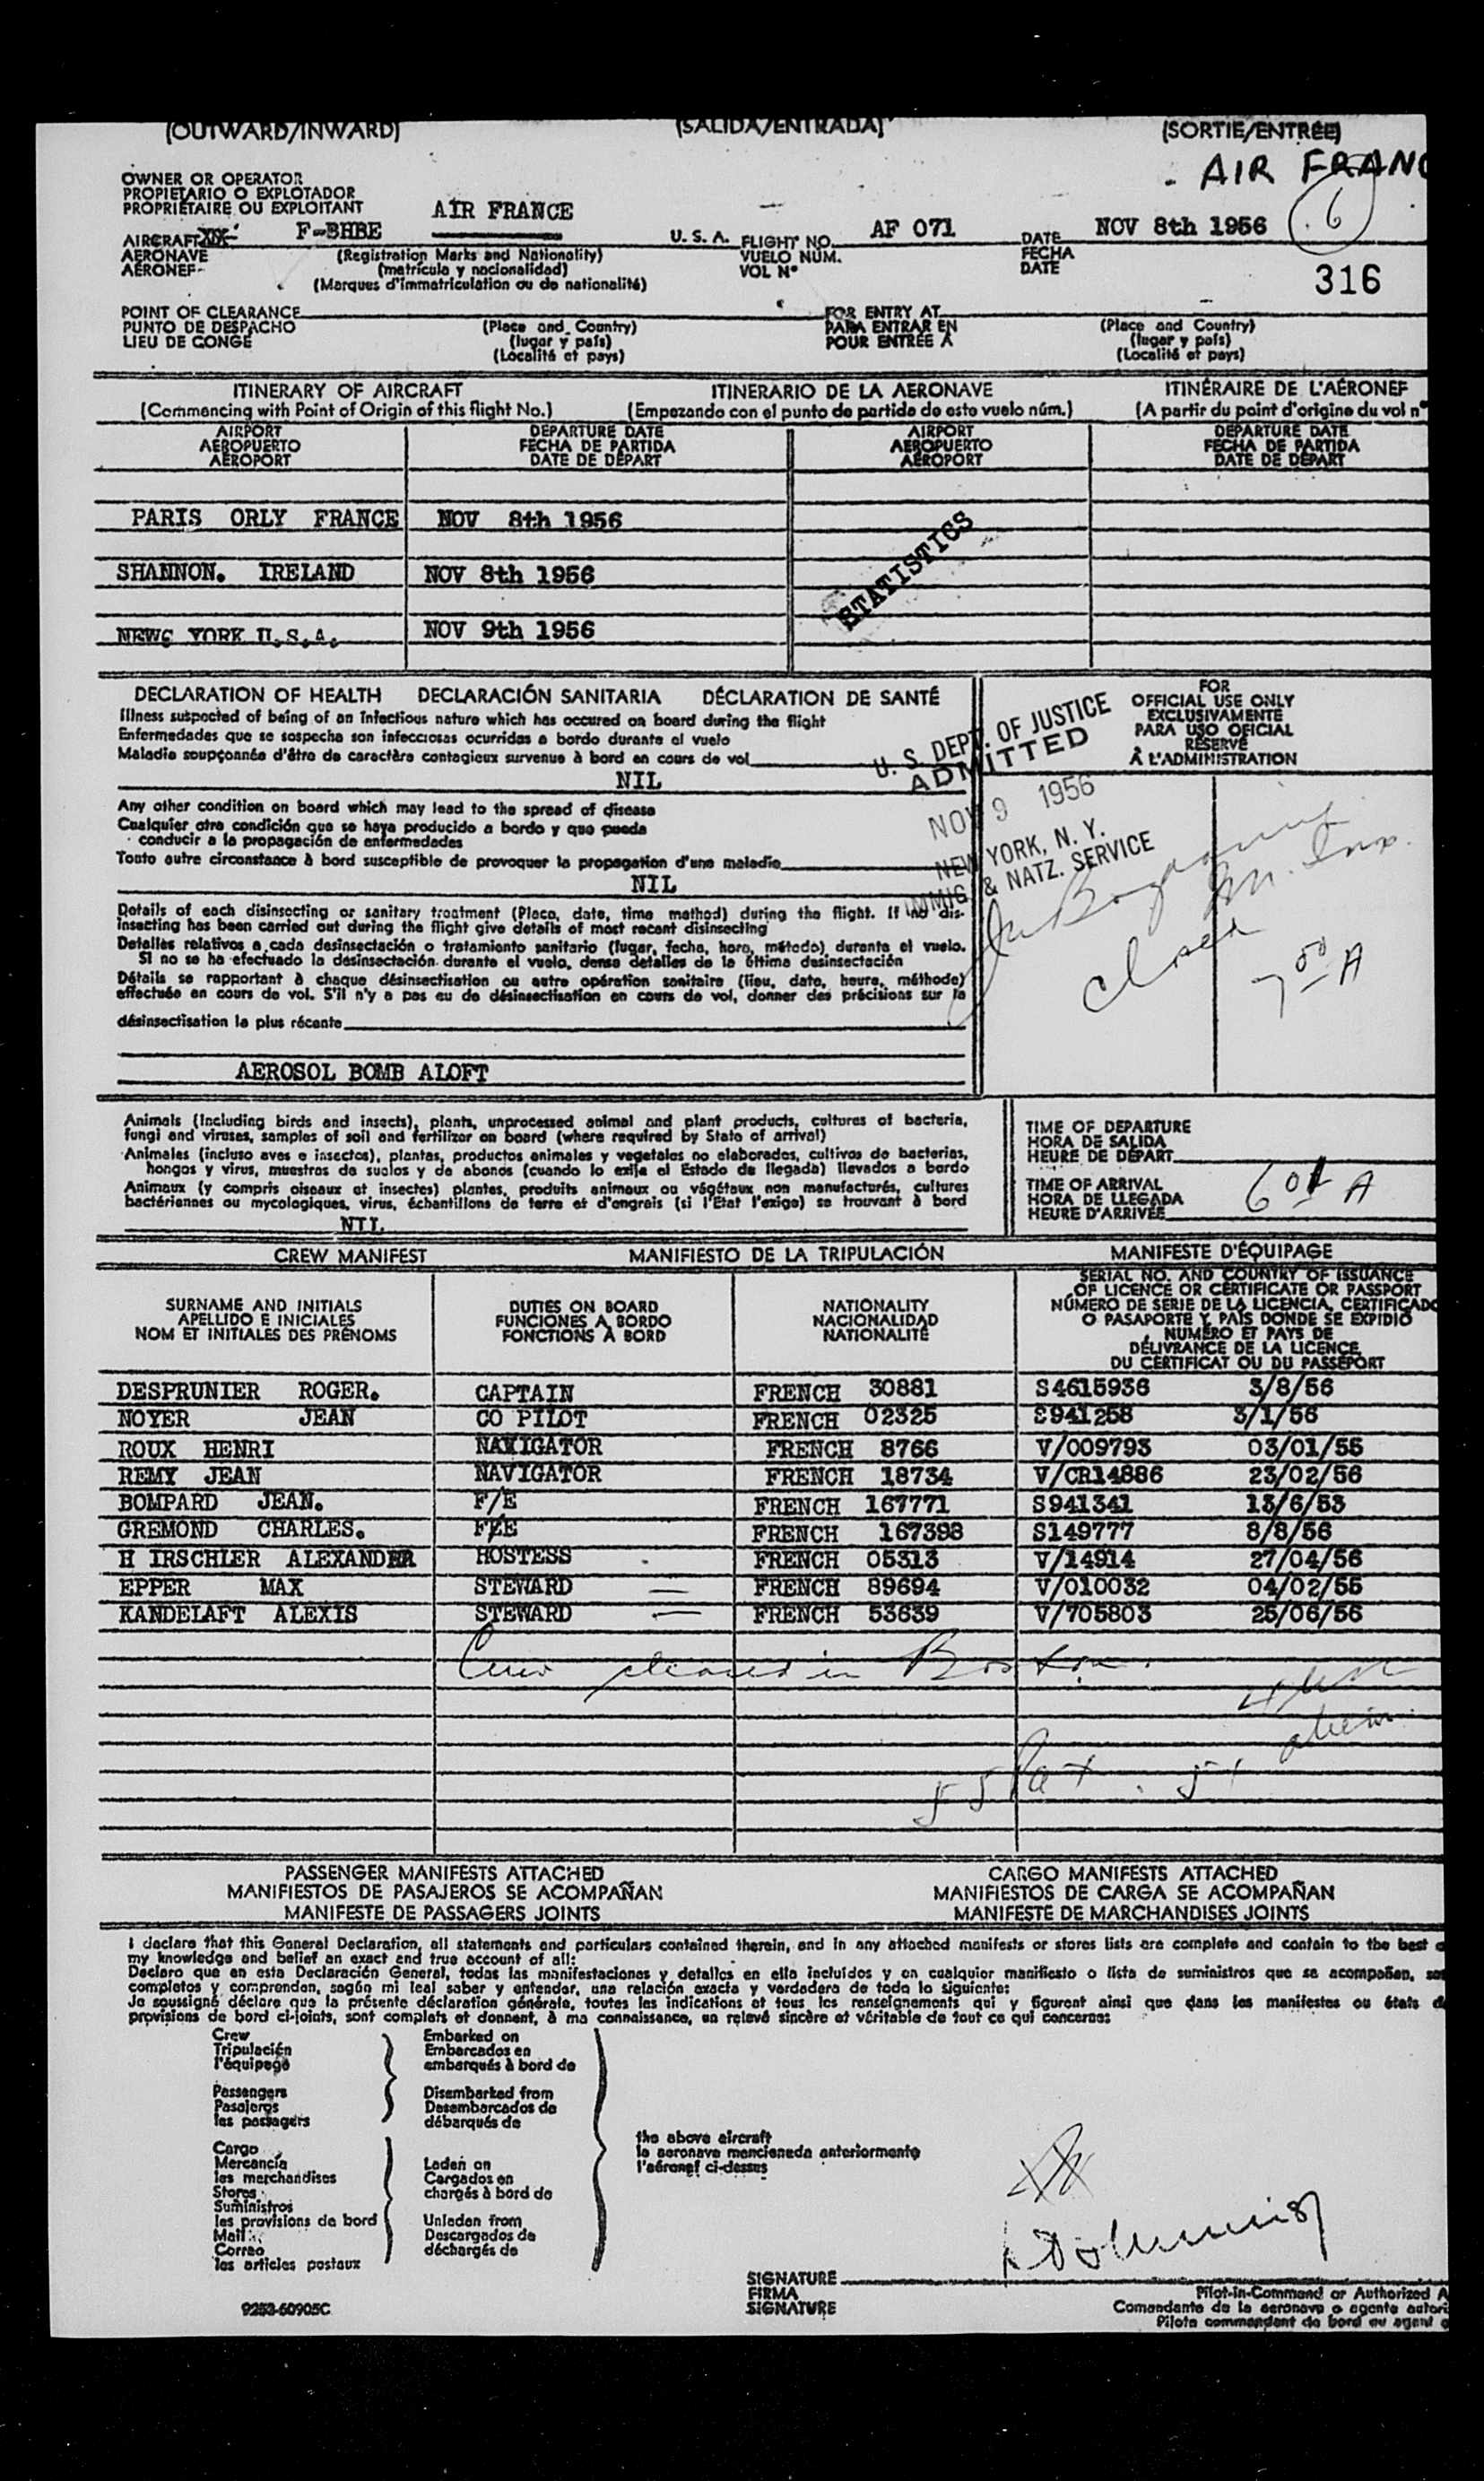 (OUTWARD/INWARD) (SALIDA/ENTRADA) (SORTIE/ENTRÉE)
AIR FRANC
OWNER OR OPERATOR
PROPIETARIO O EXPLOTADOR
PROPRIÉTAIRE OU EXPLOITANT AIR FRANCE
6
AIRCRAFT F-BHBE U.S.A. FLIGHT NO. AF 071 DATE NOV 8th 1956
AERONAVE (Registration Marks and Nationality) VUELO NÚM. FECHA
AÉRONEF (matrícula y nacionalidad) VOL Nº DATE
(Marques d'immatriculation ou de nationalité)
316
POINT OF CLEARANCE FOR ENTRY AT
PUNTO DE DESPACHO (Place and Country) PARA ENTRAR EN (Place and Country)
LIEU DE CONGÉ (lugar y país) POUR ENTRÉE À (lugar y país)
(Localité et pays) (Localité et pays)
ITINERARY OF AIRCRAFT ITINERARIO DE LA AERONAVE ITINÉRAIRE DE L'AÉRONEF
(Commencing with Point of Origin of this flight No.) (Empezando con el punto de partida de este vuelo núm.) (A partir du point d'origine du vol nº
AIRPORT DEPARTURE DATE AIRPORT DEPARTURE DATE
AEROPUERTO FECHA DE PARTIDA AEROPUERTO FECHA DE PARTIDA
AÉROPORT DATE DE DÉPART AÉROPORT DATE DE DÉPART
PARIS ORLY FRANCE NOV 8th 1956
STATISTICS
SHANNON. IRELAND NOV 8th 1956
NEWC YORK U.S.A. NOV 9th 1956
DECLARATION OF HEALTH DECLARACIÓN SANITARIA DÉCLARATION DE SANTÉ
Illness suspected of being of an infectious nature which has occured on board during the flight
Enfermedades que se sospecha son infecciosas ocurridas a bordo durante el vuelo
Maladie soupçonnée d'être de caractère contagieux survenue à bord en cours de vol
NIL
FOR
OFFICIAL USE ONLY
EXCLUSIVAMENTE
PARA USO OFICIAL
RÉSERVÉ
À L'ADMINISTRATION
U. S. DEPT. OF JUSTICE
ADMITTED
NOV 9 1956
NEW YORK, N. Y.
IMMIG & NATZ. SERVICE
Any other condition on board which may lead to the spread of disease
Cualquier otra condición que se haya producido a bordo y que pueda
conducir a la propagación de enfermedades
Toute autre circonstance à bord susceptible de provoquer la propagation d'une maladie
NIL
Details of each disinsecting or sanitary treatment (Place, date, time method) during the flight. If no dis-
insecting has been carried out during the flight give details of most recent disinsecting
Detalles relativos a cada desinsectación o tratamiento sanitario (lugar, fecha, hora, método) durante el vuelo.
Si no se ha efectuado la desinsectación durante el vuelo, dense detalles de la última desinsectación
Détails se rapportant à chaque désinsectisation ou autre opération sanitaire (lieu, date, heure, méthode)
effectuée en cours de vol. S'il n'y a pas eu de désinsectisation en cours de vol, donner des précisions sur la
désinsectisation la plus récente
closed 7 50 A
AEROSOL BOMB ALOFT
Animals (Including birds and insects), plants, unprocessed animal and plant products, cultures of bacteria,
fungi and viruses, samples of soil and fertilizer on board (where required by State of arrival)
Animales (incluso aves e insectos), plantas, productos animales y vegetales no elaborados, cultivos de bacterias,
hongos y virus, muestras de suelos y de abonos (cuando lo exija el Estado de llegada) llevados a bordo
Animaux (y compris oiseaux et insectes) plantes, produits animaux ou végétaux non manufacturés, cultures
bactériennes ou mycologiques, virus, échantillons de terre et d'engrais (si l'État l'exige) se trouvant à bord
NIL
TIME OF DEPARTURE
HORA DE SALIDA
HEURE DE DÉPART
TIME OF ARRIVAL
HORA DE LLEGADA 6 01 A
HEURE D'ARRIVÉE
CREW MANIFEST MANIFIESTO DE LA TRIPULACIÓN MANIFESTE D'ÉQUIPAGE
SURNAME AND INITIALS
APELLIDO E INICIALES
NOM ET INITIALES DES PRÉNOMS
DUTIES ON BOARD
FUNCIONES A BORDO
FONCTIONS À BORD
NATIONALITY
NACIONALIDAD
NATIONALITÉ
SERIAL NO. AND COUNTRY OF ISSUANCE
OF LICENCE OR CERTIFICATE OR PASSPORT
NÚMERO DE SERIE DE LA LICENCIA, CERTIFICADO
O PASAPORTE Y PAÍS DONDE SE EXPIDIÓ
NUMÉRO ET PAYS DE
DÉLIVRANCE DE LA LICENCE
DU CERTIFICAT OU DU PASSEPORT
DESPRUNIER ROGER. CAPTAIN FRENCH 30881 S4615936 3/8/56
NOYER JEAN CO PILOT FRENCH 02325 S941258 3/1/56
ROUX HENRI NAVIGATOR FRENCH 8766 V/009793 03/01/56
REMY JEAN NAVIGATOR FRENCH 18734 V/CR14886 23/02/56
BOMPARD JEAN. F/E FRENCH 167771 S941341 13/6/53
GREMOND CHARLES. F/E FRENCH 167398 S149777 8/8/56
H IRSCHLER ALEXANDER HOSTESS FRENCH 05313 V/14914 27/04/56
EPPER MAX STEWARD FRENCH 89694 V/010032 04/02/56
KANDELAFT ALEXIS STEWARD FRENCH 53639 V/705803 25/06/56
Crew cleared in Boston.
55 Pax . 51
PASSENGER MANIFESTS ATTACHED CARGO MANIFESTS ATTACHED
MANIFIESTOS DE PASAJEROS SE ACOMPAÑAN MANIFIESTOS DE CARGA SE ACOMPAÑAN
MANIFESTE DE PASSAGERS JOINTS MANIFESTE DE MARCHANDISES JOINTS
I declare that this General Declaration, all statements and particulars contained therein, and in any attached manifests or stores lists are complete and contain to the best
my knowledge and belief an exact and true account of all:
Declaro que en esta Declaración General, todas las manifestaciones y detalles en ella incluídos y en cualquier manifiesto o lista de suministros que se acompañan,
completos y comprenden, según mi leal saber y entender, una relación exacta y verdadera de todo lo siguiente:
Je soussigné déclare que la présente déclaration générale, toutes les indications et tous les renseignements qui y figurent ainsi que dans les manifestes ou états
provisions de bord ci-joints, sont complets et donnent, à ma connaissance, un relevé sincère et véritable de tout ce qui concerne:
Crew Embarked on
Tripulación Embarcados en
l'équipage embarqués à bord de
Passengers Disembarked from
Pasajeros Desembarcados de
les passagers débarqués de
the above aircraft
la aeronave mencionada anteriormente
l'aéronef ci-dessus
Cargo
Mercancía Laden on
les marchandises Cargados en
Stores chargés à bord de
Suministros
les provisions de bord Unladen from
Mail Descargados de
Correo déchargés de
les articles postaux
SIGNATURE
FIRMA
SIGNATURE
Pilot-in-Command or Authorized A
Comandante de la aeronave o agente autori
Pilote commandant de bord ou agent
9253-60905C